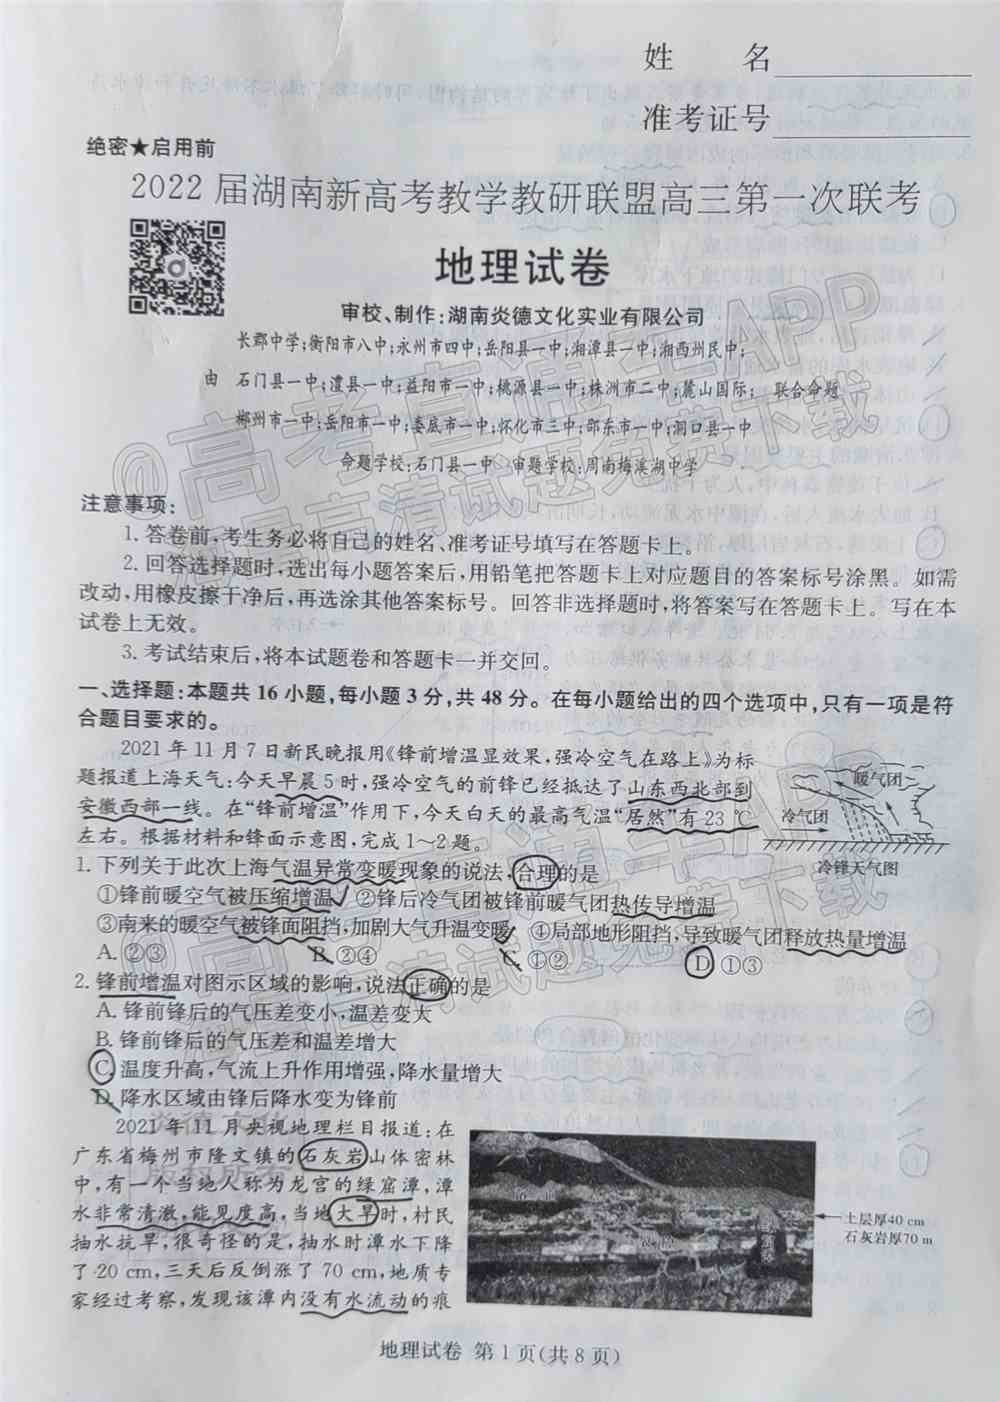 姓 名
准考证号
绝密★启用前
2022届湖南新高考教学教研联盟高三第一次联考
地理试卷
审校、制作:湖南炎德文化实业有限公司
长郡中学;衡阳市八中;永州市四中;岳阳县一中;湘潭县一中;湘西州民中;
由 石门县一中;澧县一中;益阳市一中;桃源县一中;株洲市二中;麓山国际; 联合命题
郴州市一中;岳阳市一中;娄底市一中;怀化市三中;邵东市一中;洞口县一中
命题学校:石门县一中 审题学校:周南梅溪湖中学
注意事项:
1. 答卷前,考生务必将自己的姓名、准考证号填写在答题卡上。
2. 回答选择题时,选出每小题答案后,用铅笔把答题卡上对应题目的答案标号涂黑。如需
改动,用橡皮擦干净后,再选涂其他答案标号。回答非选择题时,将答案写在答题卡上。写在本
试卷上无效。
3. 考试结束后,将本试题卷和答题卡一并交回。
一、选择题:本题共16小题,每小题3分,共48分。在每小题给出的四个选项中,只有一项是符
合题目要求的。
2021年11月7日新民晚报用《锋前增温显效果,强冷空气在路上》为标
题报道上海天气:今天早晨5时,强冷空气的前锋已经抵达了山东西北部到
安徽西部一线。在“锋前增温”作用下,今天白天的最高气温“居然”有23 ℃
左右。根据材料和锋面示意图,完成1~2题。
暖气团
冷气团
冷锋天气图
1. 下列关于此次上海气温异常变暖现象的说法,合理的是
①锋前暖空气被压缩增温 ②锋后冷气团被锋前暖气团热传导增温
③南来的暖空气被锋面阻挡,加剧大气升温变暖 ④局部地形阻挡,导致暖气团释放热量增温
A. ②③ B. ③④ C. ①② D. ①③
2. 锋前增温对图示区域的影响,说法正确的是
A. 锋前锋后的气压差变小,温差变大
B. 锋前锋后的气压差和温差增大
C. 温度升高,气流上升作用增强,降水量增大
D. 降水区域由锋后降水变为锋前
2021年11月央视地理栏目报道:在
广东省梅州市隆文镇的石灰岩山体密林
中,有一个当地人称为龙宫的绿窟潭,潭
水非常清澈,能见度高,当地大旱时,村民
抽水抗旱,很奇怪的是,抽水时潭水下降
了20 cm,三天后反倒涨了70 cm,地质专
家经过考察,发现该潭内没有水流动的痕
土层厚40 cm
石灰岩厚70 m
地理试卷 第1页(共8页)
@高考直通车APP
海量高清试题免费下载
炎德文化
版权所有